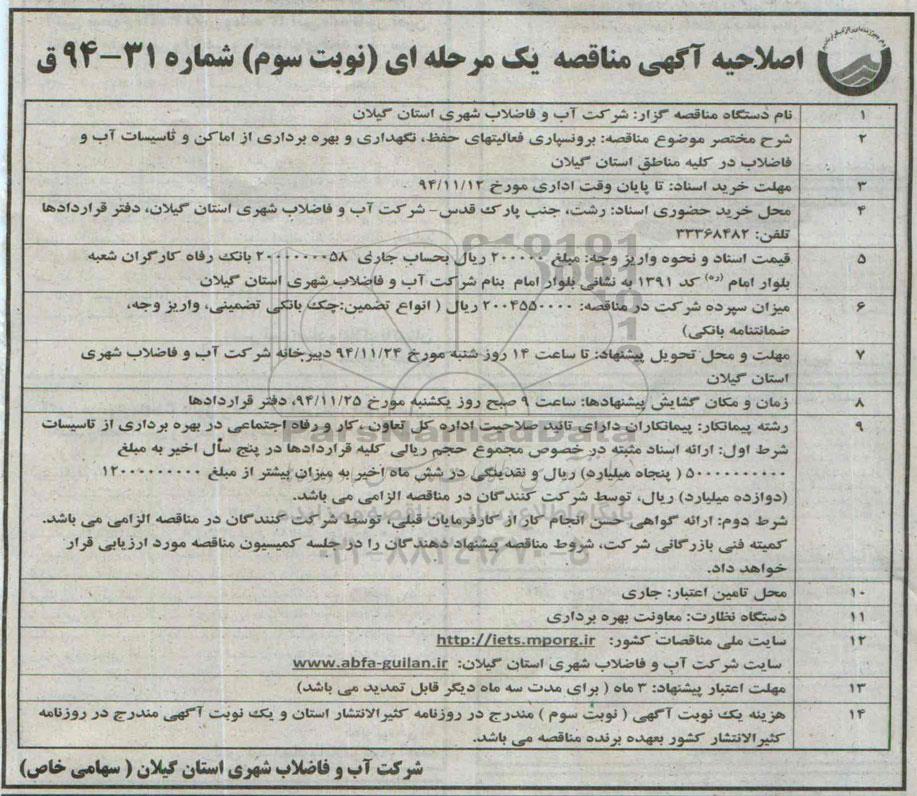 اصلاحیه آگهی مناقصه یک مرحله ای (نوبت سوم) شماره ۳۱-۹۴ ق
۱ نام دستگاه مناقصه گزار: شرکت آب و فاضلاب شهری استان گیلان
۲ شرح مختصر موضوع مناقصه: برونسپاری فعالیتهای حفظ، نگهداری و بهره برداری از اماکن و تاسیسات آب و
فاضلاب در کلیه مناطق استان گیلان
۳ مهلت خرید اسناد: تا پایان وقت اداری مورخ ۹۴/۱۱/۱۲
۴ محل خرید حضوری اسناد: رشت، جنب پارک قدس- شرکت آب و فاضلاب شهری استان گیلان، دفتر قراردادها
تلفن: ۳۳۳۶۸۴۸۲
۵ قیمت اسناد و نحوه واریز وجه: مبلغ ۲۰۰۰۰۰ ریال بحساب جاری ۲۰۰۰۰۰۰۰۵۸ بانک رفاه کارگران شعبه
بلوار امام (ره) کد ۱۳۹۱ به نشانی بلوار امام بنام شرکت آب و فاضلاب شهری استان گیلان
۶ میزان سپرده شرکت در مناقصه: ۲۰۰۴۵۵۰۰۰۰ ریال ( انواع تضمین:چک بانکی تضمینی، واریز وجه،
ضمانتنامه بانکی)
۷ مهلت و محل تحویل پیشنهاد: تا ساعت ۱۴ روز شنبه مورخ ۹۴/۱۱/۲۴ دبیرخانه شرکت آب و فاضلاب شهری
استان گیلان
۸ زمان و مکان گشایش پیشنهادها: ساعت ۹ صبح روز یکشنبه مورخ ۹۴/۱۱/۲۵، دفتر قراردادها
۹ رشته پیمانکار: پیمانکاران دارای تائید صلاحیت اداره کل تعاون ، کار و رفاه اجتماعی در بهره برداری از تاسیسات
شرط اول: ارائه اسناد مثبته در خصوص مجموع حجم ریالی کلیه قراردادها در پنج سال اخیر به مبلغ
۵۰۰۰۰۰۰۰۰۰۰ ( پنجاه میلیارد) ریال و نقدینگی در شش ماه اخیر به میزان بیشتر از مبلغ ۱۲۰۰۰۰۰۰۰۰۰
(دوازده میلیارد) ریال، توسط شرکت کنندگان در مناقصه الزامی می باشد.
شرط دوم: ارائه گواهی حسن انجام کار از کارفرمایان قبلی، توسط شرکت کنندگان در مناقصه الزامی می باشد.
کمیته فنی بازرگانی شرکت، شروط مناقصه پیشنهاد دهندگان را در جلسه کمیسیون مناقصه مورد ارزیابی قرار
خواهد داد.
۱۰ محل تامین اعتبار: جاری
۱۱ دستگاه نظارت: معاونت بهره برداری
۱۲ سایت ملی مناقصات کشور: http://iets.mporg.ir
سایت شرکت آب و فاضلاب شهری استان گیلان: www.abfa-guilan.ir
۱۳ مهلت اعتبار پیشنهاد: ۳ ماه ( برای مدت سه ماه دیگر قابل تمدید می باشد)
۱۴ هزینه یک نوبت آگهی ( نوبت سوم ) مندرج در روزنامه کثیرالانتشار استان و یک نوبت آگهی مندرج در روزنامه
کثیرالانتشار کشور بعهده برنده مناقصه می باشد.
شرکت آب و فاضلاب شهری استان گیلان ( سهامی خاص)
ParsNamadData
پایگاه اطلاع رسانی مناقصه و مزایده
۰۲۱-۸۸۳۴۹۶۷۰-۵